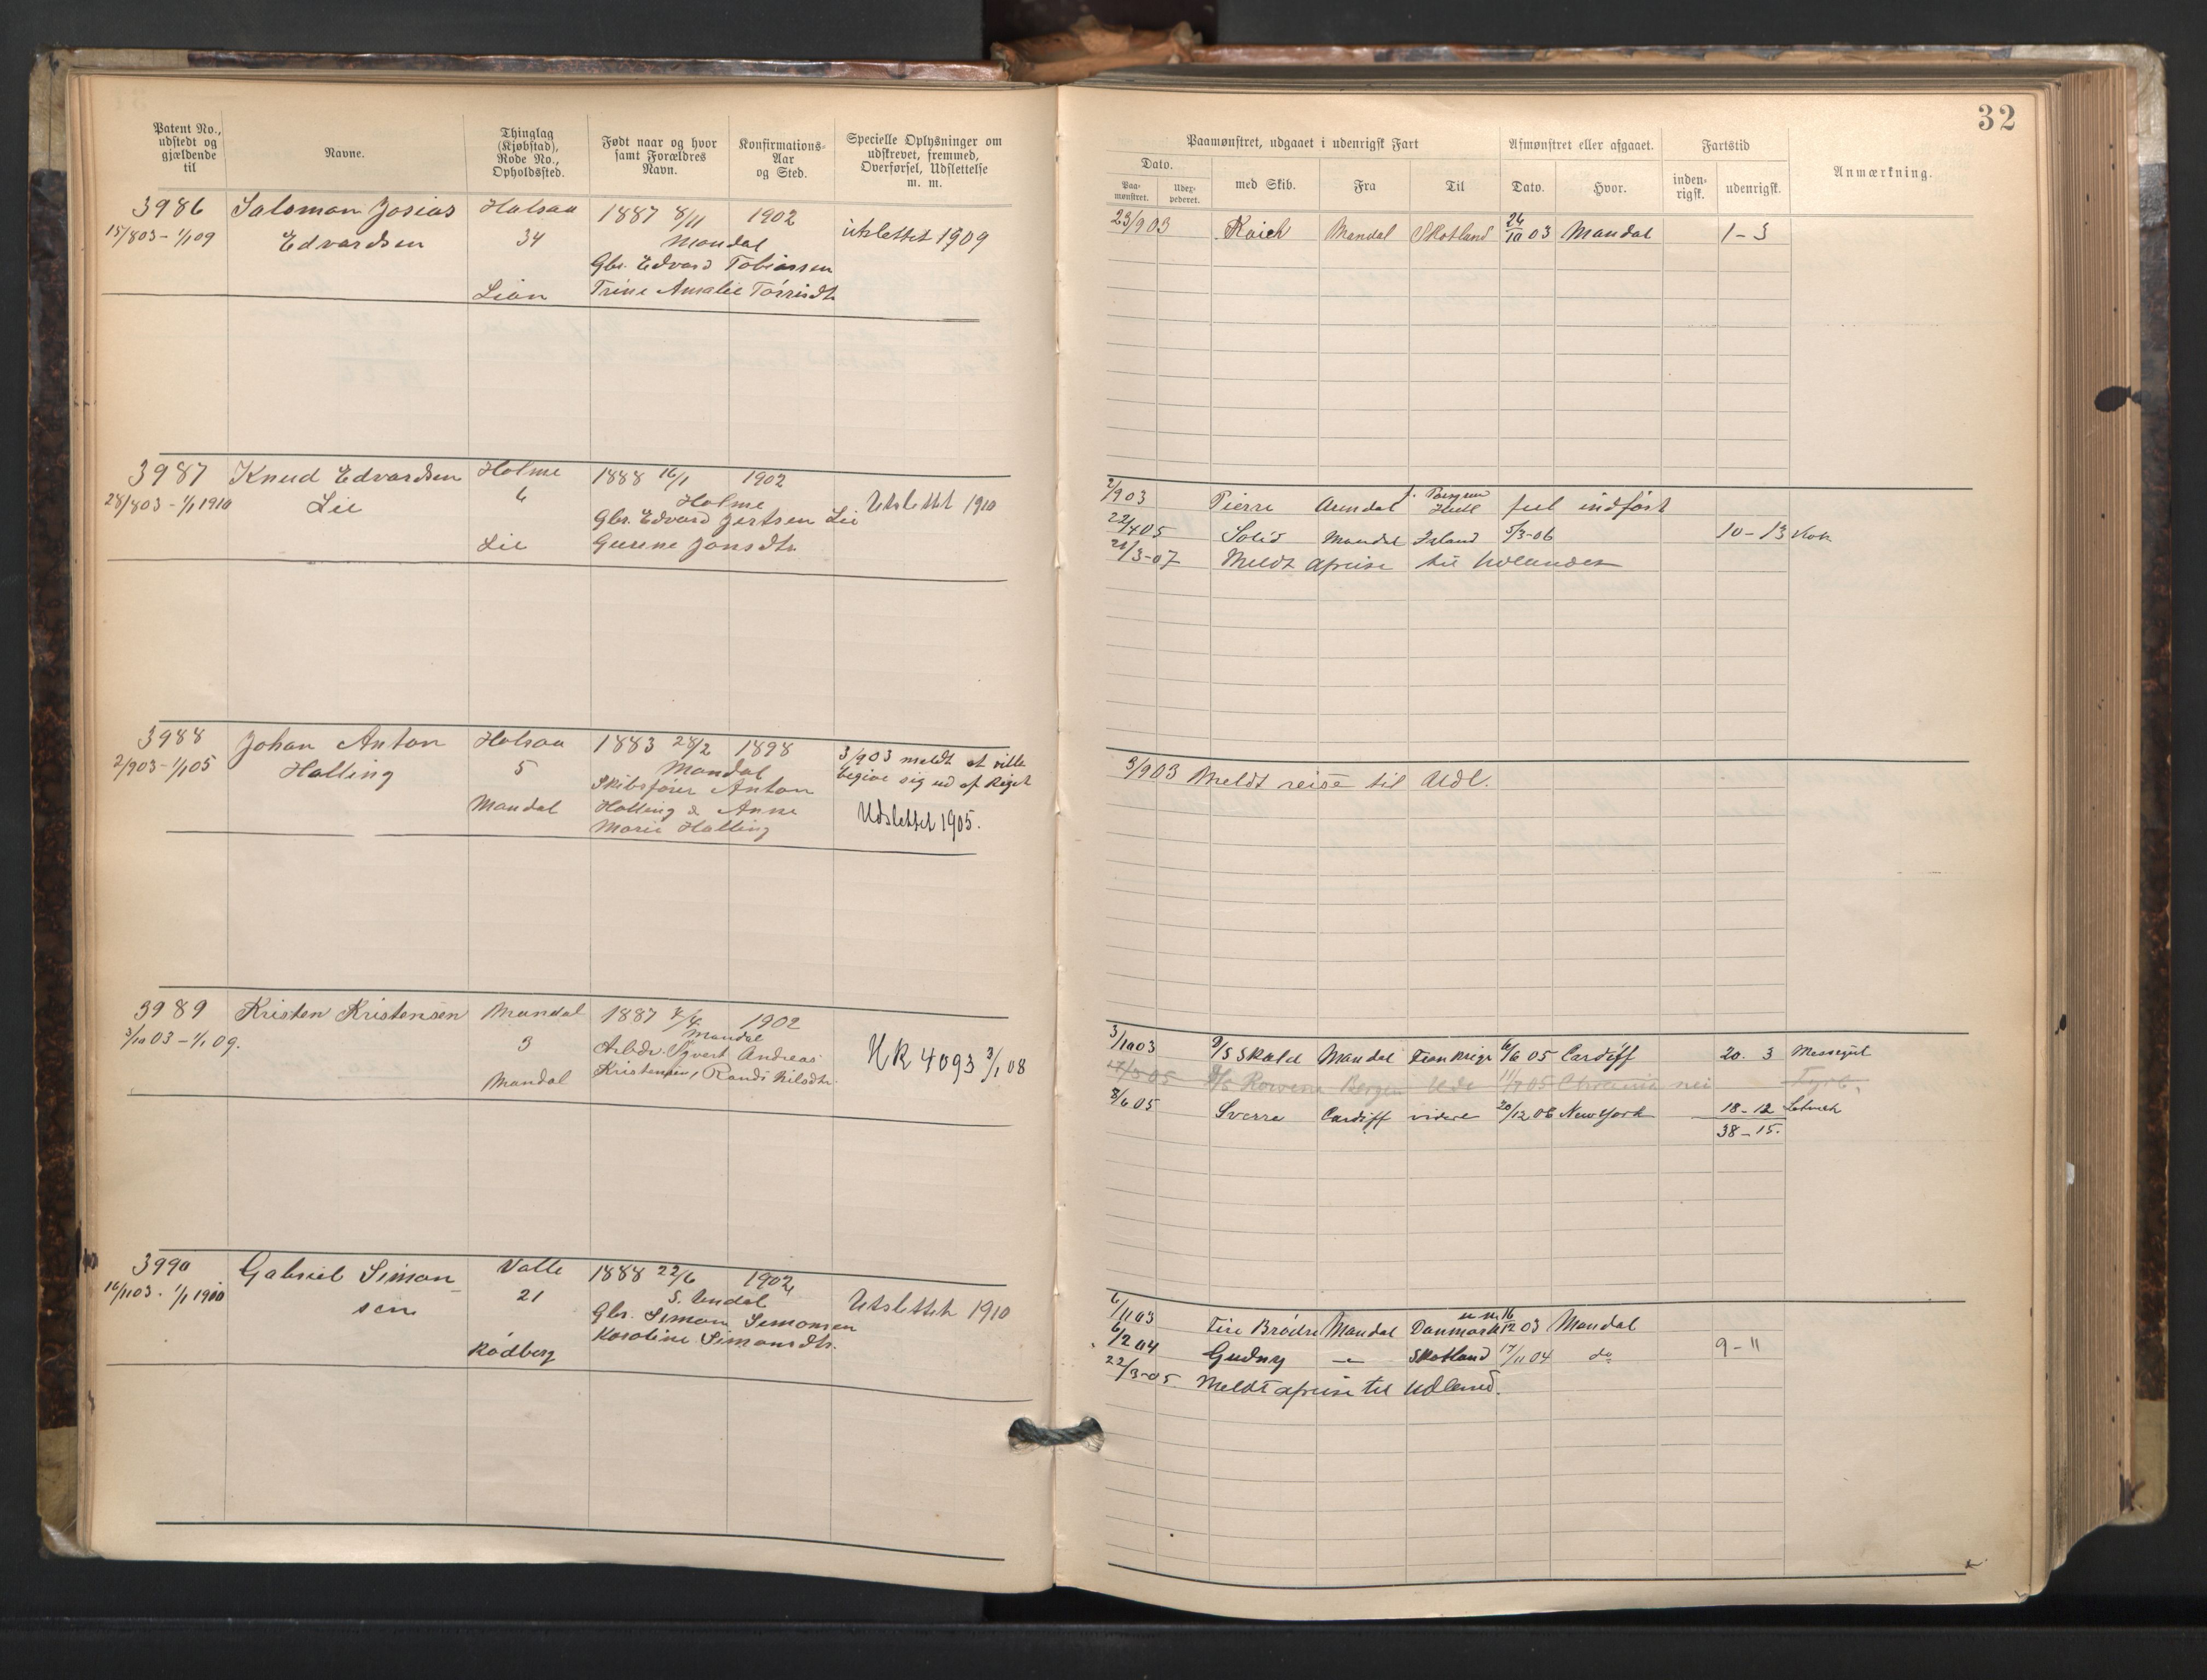 32
Patent No., udstedt og gjældende til
Navne.
Thinglag (Kjøbstad), Rode No., Opholdssted.
Født naar og hvor samt Forældres Navn.
Konfirmations-Aar og Sted.
Specielle Oplysninger om udskrevet, fremmed, Overførsel, Udslettelse m. m.
Paamønstret, udgaaet i udenrigsk Fart
Afmønstret eller afgaaet.
Fartstid
Anmærkning.
Dato.
Paa-mønstret.
Udex-pederet.
med Skib.
Fra
Til
Dato.
Hvor.
inden-rigsk.
udenrigsk.
3986 Salomon Josias Halsaa 1887 8/11 1902
15/803 - 1/1 09 Edvardsen 34 Mandal utslettet 1909
Gbr. Edvard Tobiassen
Lian Trine Amalie Tørrisdtr
23/903 Mandal Skotland 26/10 03 Mandal 1-3
3987 Knud Edvardsen Holme 1888 16/1 1902
28/803 - 1/1 1910 Lie 6 Holme Utslettet 1910
Gbr. Edvard Jertsen Lie
Lie Gurine Jonsdtr
2/903 Pierre Arendal feil indført
22/405 Solid Mandal Island 5/3-06 10-13 Kok
21/3-07 Meldt afreise til Udlandet
3988 Johan Anton Halsaa 1883 28/2 1898 3/903 meldt at ville
2/903 - 1/1 05 Halling 5 Mandal begive sig ud af Riget
Skibsfører Anton
Mandal Halling & Anne Udslettet 1905.
Marie Halling
3/903 Meldt reise til Udl.
3989 Kristen Kristensen Mandal 1887 1902
3/10 03 - 1/1 09. 3 Mandal
Arbdr. Syvert Andreas HR 4093 3/1 08
Mandal Kristensen, Randi Nilsdtr.
3/1003 D/S Skald Mandal 6/6 05 Cardiff 20. 3 Messegut
17/3 05 D/S Rowena Bergen Udl 11/7 05 Chrania nei Fyrb.
8/6 05 Sverre Cardiff videre 20/12 06 New York 18-12 Letmatr
38-15.
3990 Gabriel Simon Valle 1888 22/6 1902
16/1103 - 1/1 1910 sen 21 S. Undal Utslettet 1910
Gbr. Simon Simonsen
Rødberg Karoline Simonsdtr.
6/1103 Fire Brødre Mandal Danmark 16/12 03 Mandal
6/2 04 Gudny — Skotland 17/11 04 do 9-11
22/3-05 Meldt afreise til Udland.